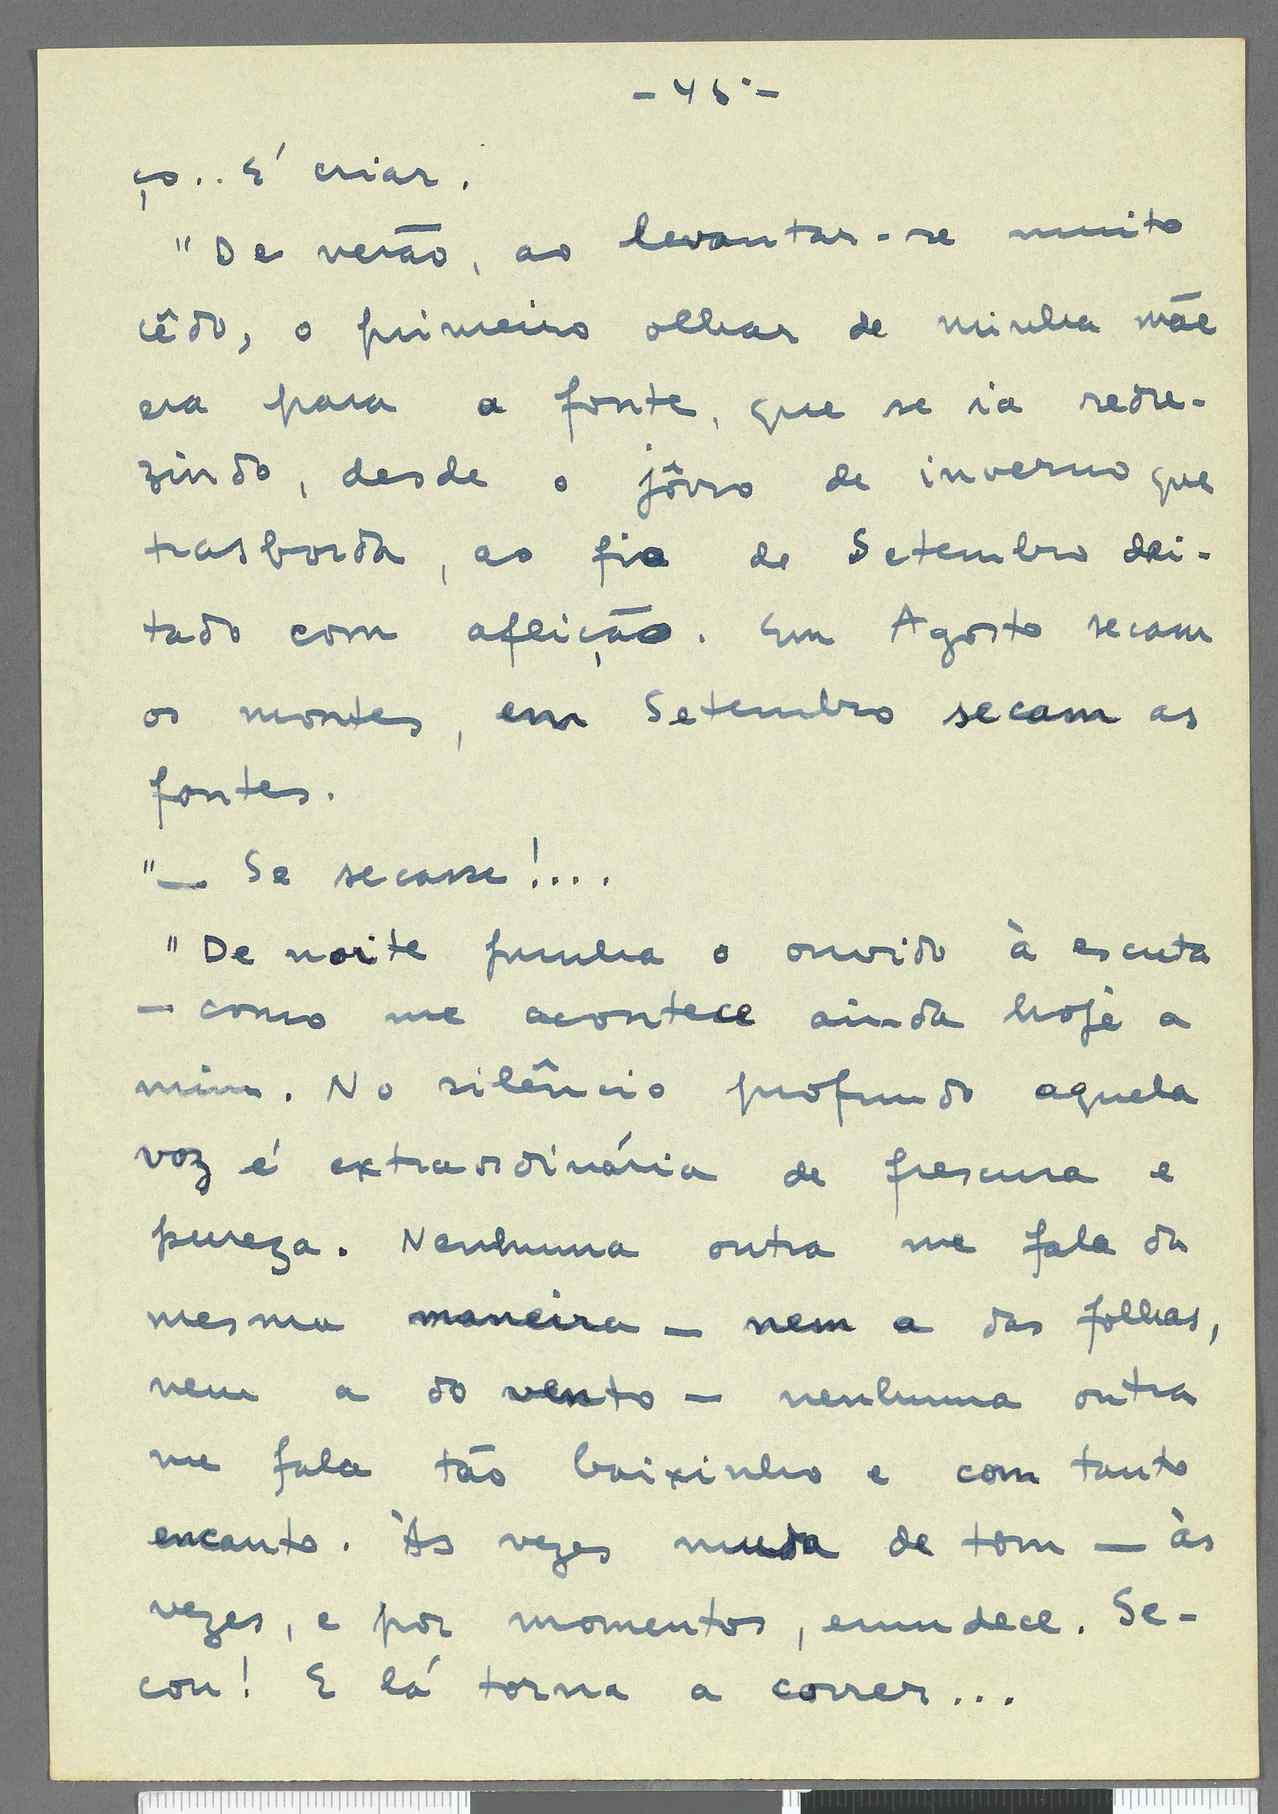 - 45 -
ço.. E' criar.
"De verão, ao levantar-se muito
cêdo, o primeiro olhar de minha mãe
era para a fonte, que se ia redu-
zindo, desde o jôrro de inverno que
trasborda, ao fio de Setembro dei-
tado com aflição. Em Agosto secam
os montes, em Setembro secam as
fontes.
"— Se secasse!...
"De noite punha o ouvido à escuta
— como me acontece ainda hoje a
mim. No silêncio profundo aquela
voz é extraordinária de frescura e
pureza. Nenhuma outra me fala da
mesma maneira — nem a das folhas,
nem a do vento — nenhuma outra
me fala tão baixinho e com tanto
encanto. Às vezes muda de tom — às
vezes, e por momentos, emudece. Se-
cou! E lá torna a correr...